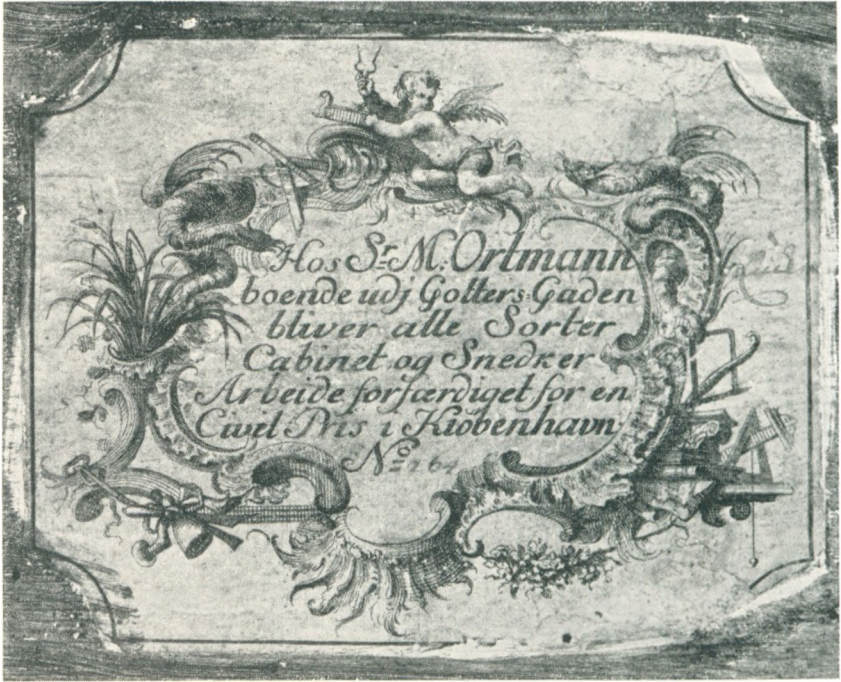 Hos Sr. M: Ortmann
boende udj Gotters-Gaden
bliver alle Sorter
Cabinet og Snedker
Arbeide forfærdiget for en
Civil Pris i Kiöbenhavn
No 164